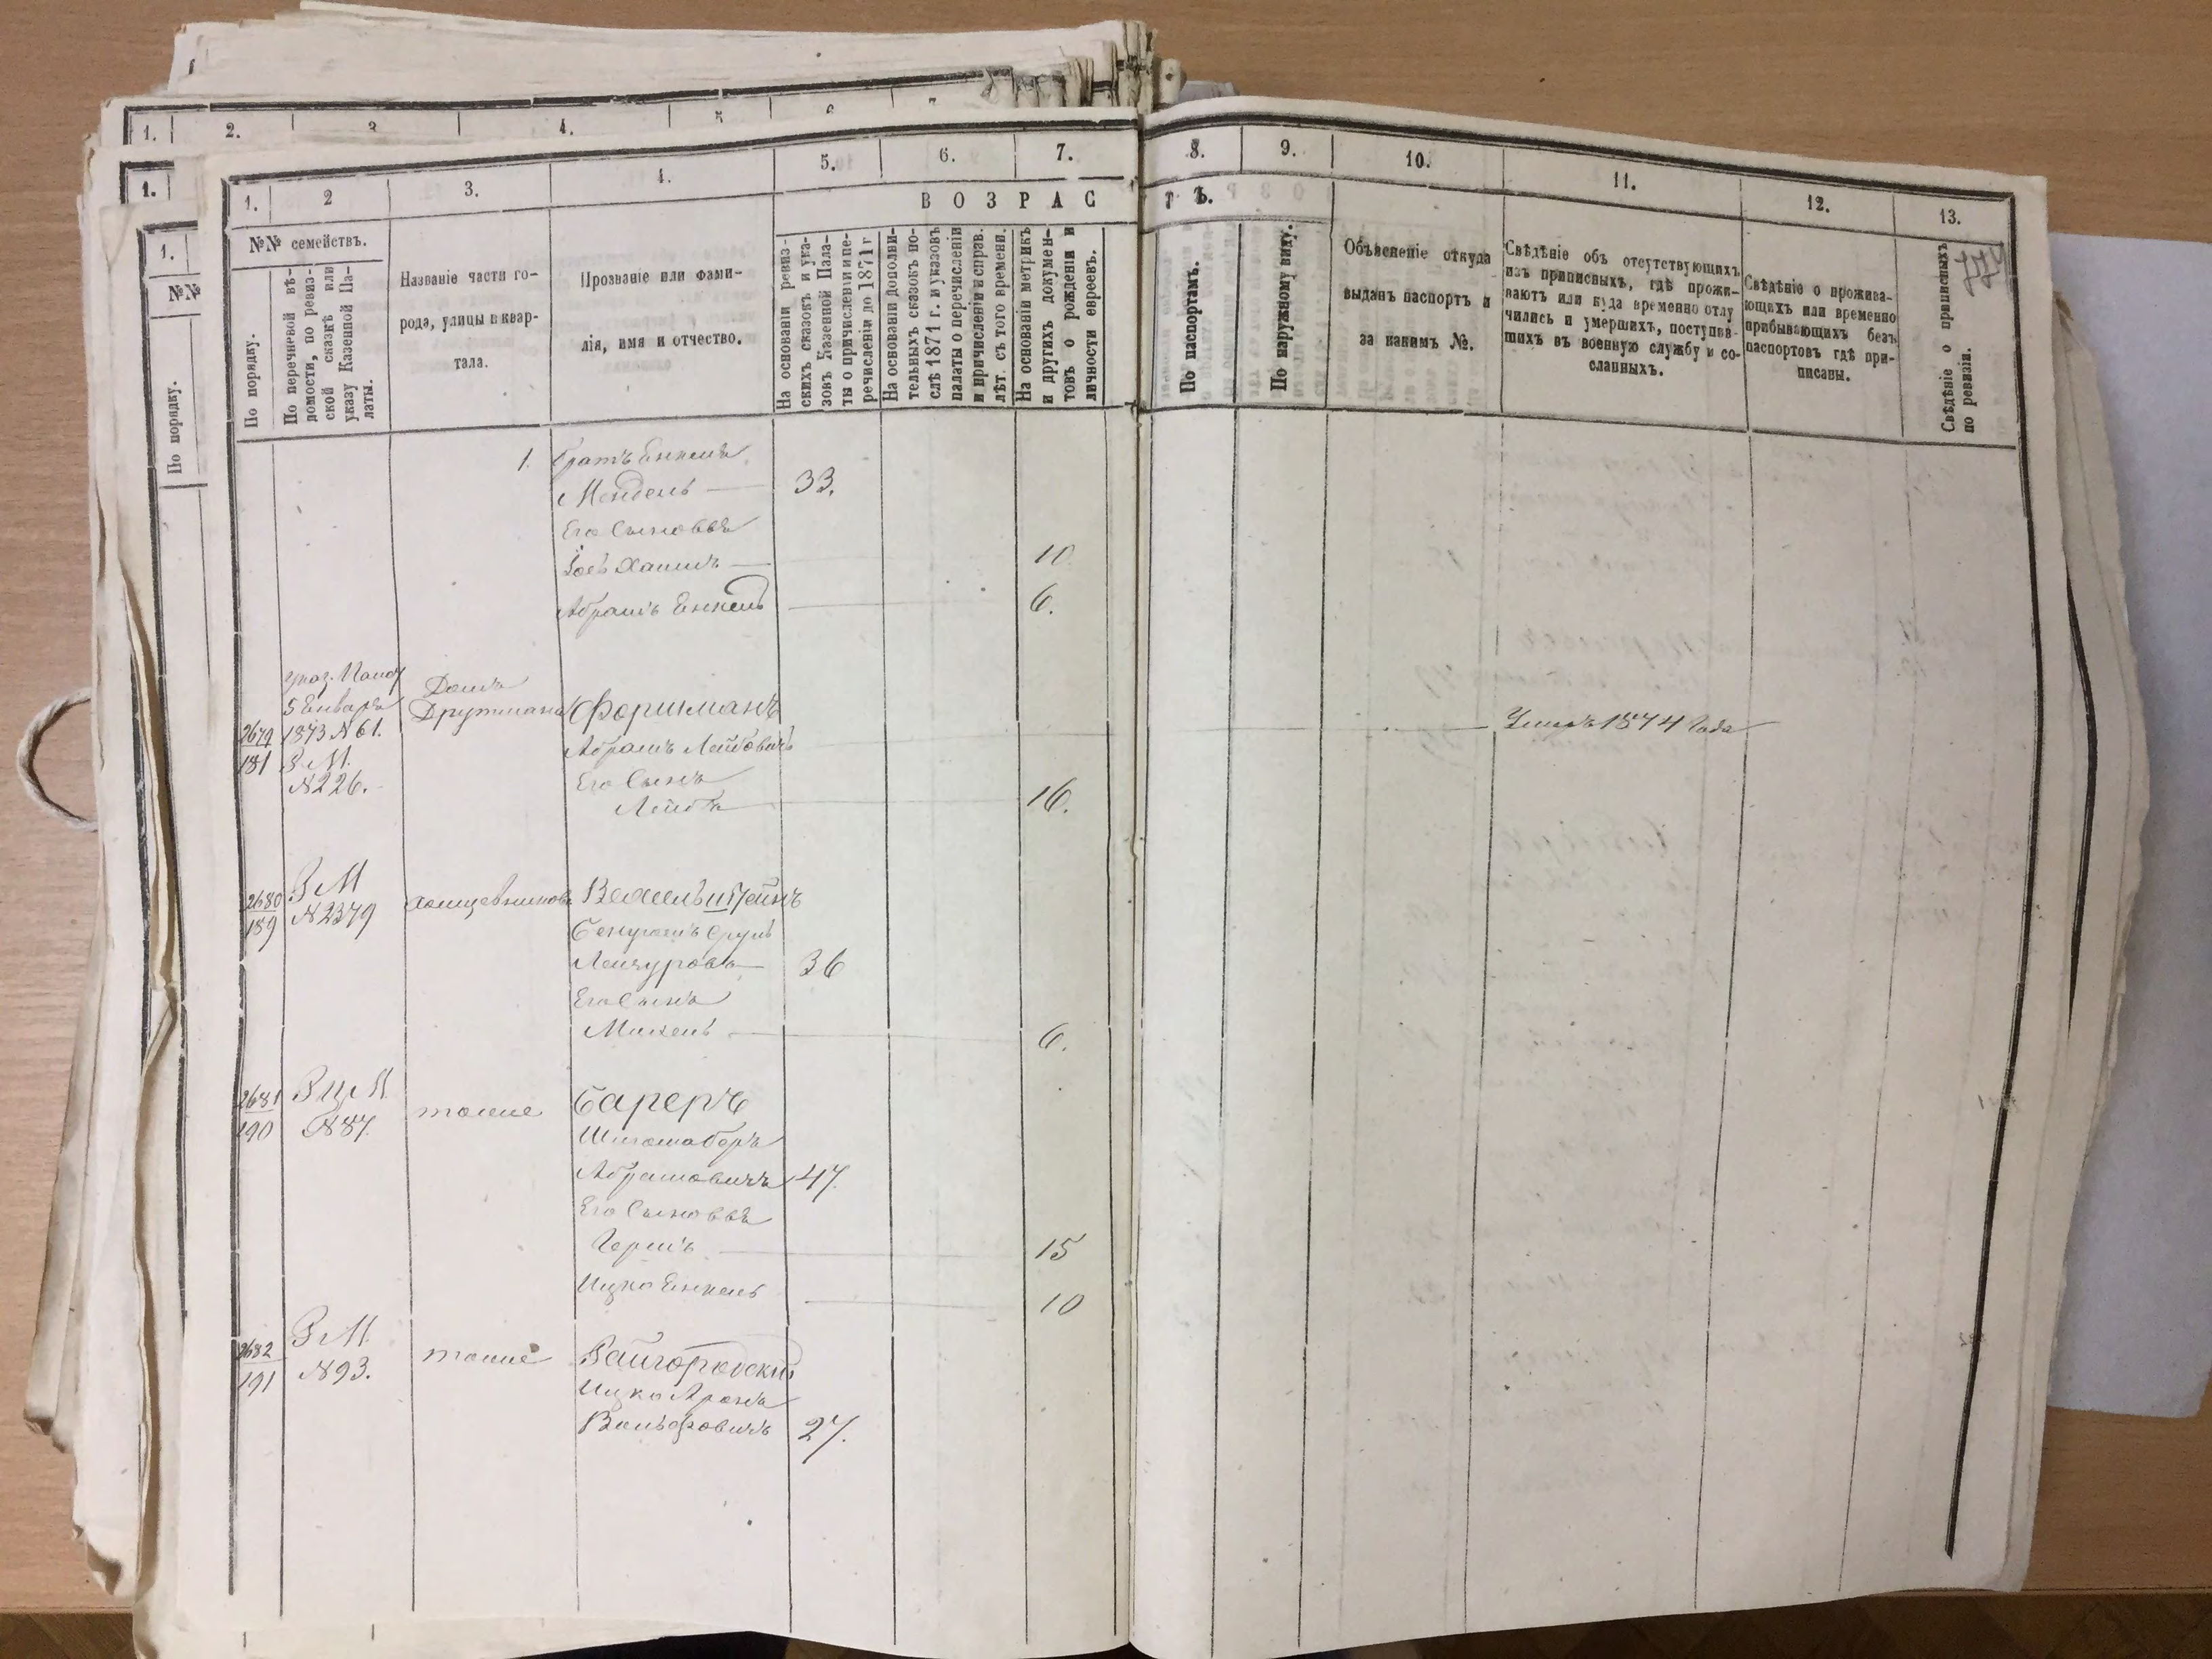 1. 2. 3 4. 5 6 7
1.
1.
№№
По порядку.
1. 2 3. 4. 5. 6. 7. 8. 9. 10. 11. 12. 13.
ВОЗРАСТЪ.
№№ семействъ.
По порядку.
По перечневой вѣдомости, по ревизской сказкѣ или указу Казенной Палаты.
Названіе части города, улицы и квартала.
Прозваніе или фамилія, имя и отчество.
На основаніи ревизскихъ сказокъ и указовъ Казенной Палаты о причисленіи и перечисленіи до 1871 г
На основаніи дополнительныхъ сказокъ послѣ 1871 г. и указовъ палаты о перечисленіи и причисленіи и справ. лѣт. съ того времени.
На основаніи метрикъ и другихъ документовъ о рожденіи и личности евреевъ.
По паспортамъ.
По наружному виду.
Объясненіе откуда выданъ паспортъ и за какимъ №.
Свѣдѣніе объ отсутствующихъ изъ приписныхъ, гдѣ проживаютъ или куда временно отлучились и умершихъ, поступившихъ въ военную службу и сосланныхъ.
Свѣдѣніе о проживающихъ или временно прибывающихъ безъ паспортовъ гдѣ приписаны.
Свѣдѣніе о приписныхъ по ревизіи.
1. Братъ Енкеля
Мендель 33.
Его Сыновья
Іось Хаимъ 10
Абрамъ Енкель 6.
указ. Палат
5 Января Домъ
2679 1873 №61. Друтмана Форшманъ
181 З М. Абрамъ Лейбовичъ Умеръ 1874 Года
№226. Его Сынъ
Лейба 16.
2680 З М
189 №2379 Вексельштейнъ
Срулъ
36
Его Сынъ
6.
2681 З М
190 №87. тоже Бареръ
Абрамовичъ 47.
Его Сыновья
Гершъ 15
Ицко Енкель 10
2682 З М.
191 №93. тоже Райгородскій
Ицко Аронъ
Вольфовичъ 27.